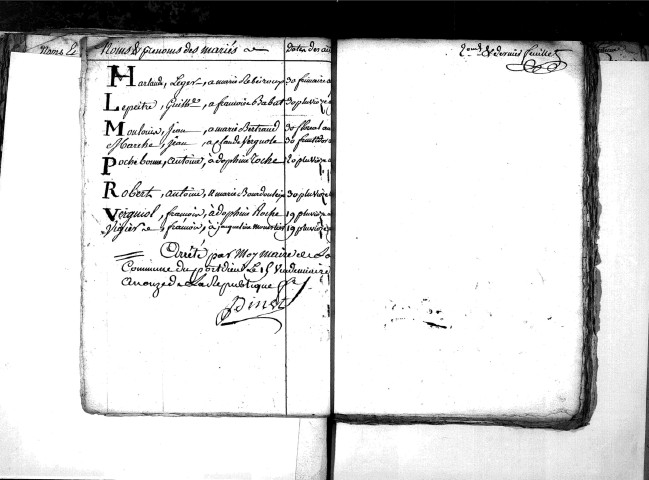 Noms & prenoms des mariés
Dates des
H
Harlaud, Leger, a marie 30 frimaire
L
Lepeitre, Guill.me, a francoise Babut 30 pluviose
M
Moulouis, Jean, a marie Bertrand 30 floreal an
Marche, jean, a Claude Vergnole 30 fructidor
P
Rochebonne, antoine, à dophine Roche 20 pluviose
R
Robert, antoine, a marie 30 pluviose
V
Vergniol, francois, à dophine Roche 19 pluviose
Vigier, francois, à jacqueline 19 pluviose
Arrêté par Moy maire de La
Commune du port dieu Le 15 Vendemiaire
an onze de La Republique
Dinet
2eme & dernier feuillet